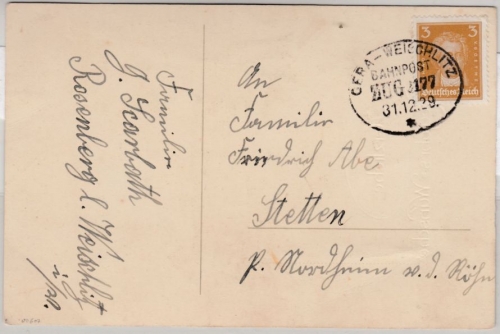 3 3
Deutsches Reich
GERA-WEISCHLITZ
BAHNPOST
ZUG 3177
31.12.29.
An
Familie
Friedrich Abe
Stetten
p. Nordheim v. d. Röhn
Familie
G. Scarbath
Rosenberg b. Weischlitz
i/V.